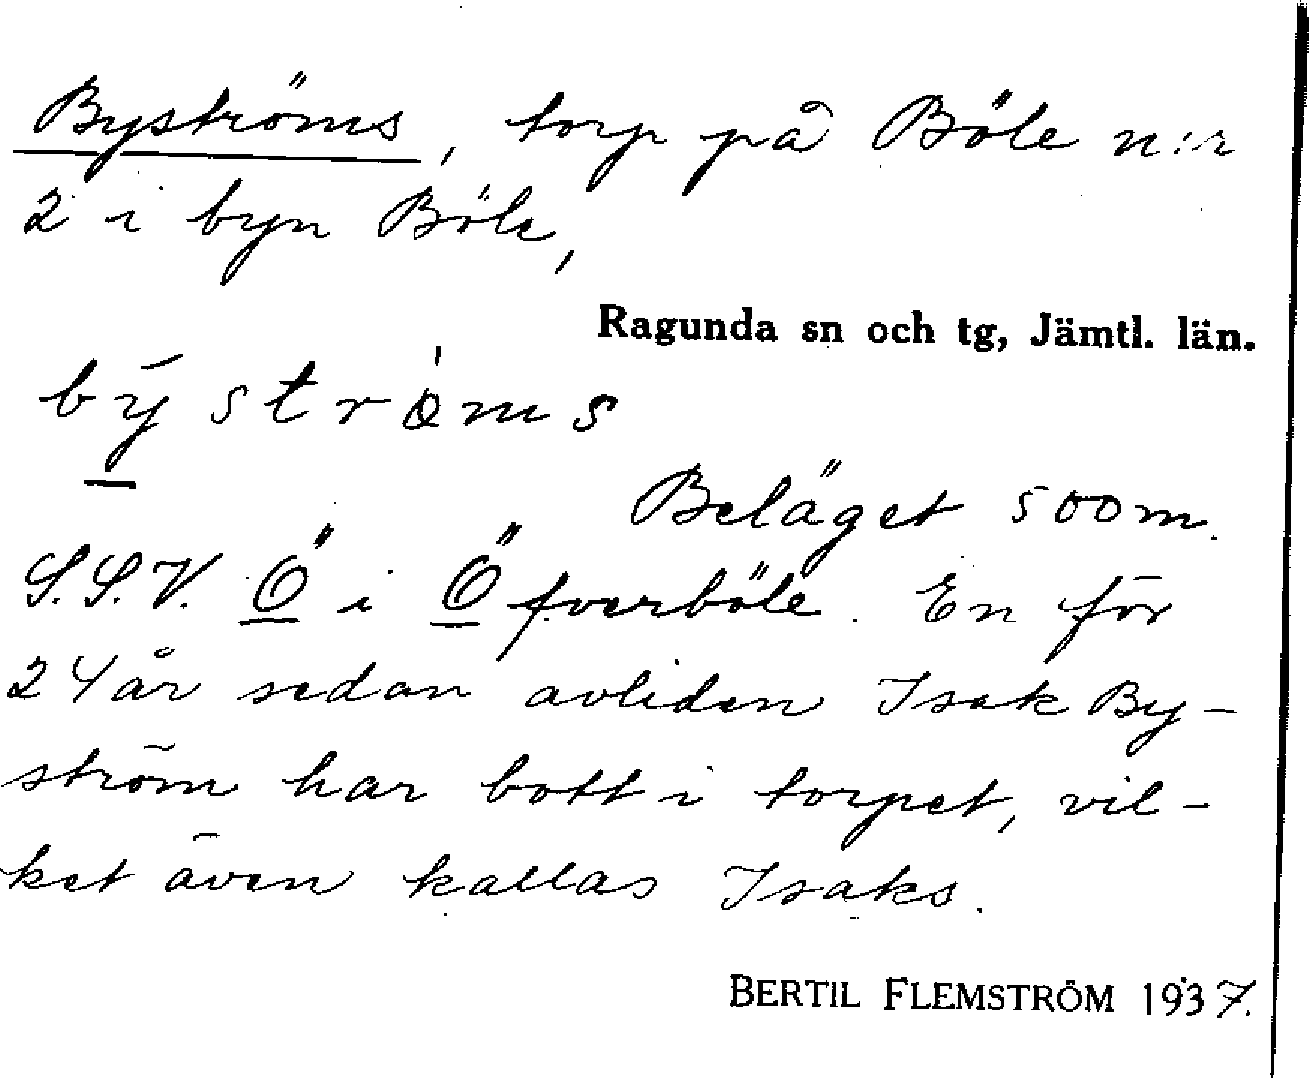 Byströms, torp på Böle n:r
2 i byn Böle,
Ragunda sn och tg, Jämtl. län.
bȳströms
Beläget 500 m.
S.S.V. Ö i Öfverböle. En för
24 år sedan avliden Isak By-
ström har bott i torpet, vil-
ket även kallas Isaks.
BERTIL FLEMSTRÖM 1937.